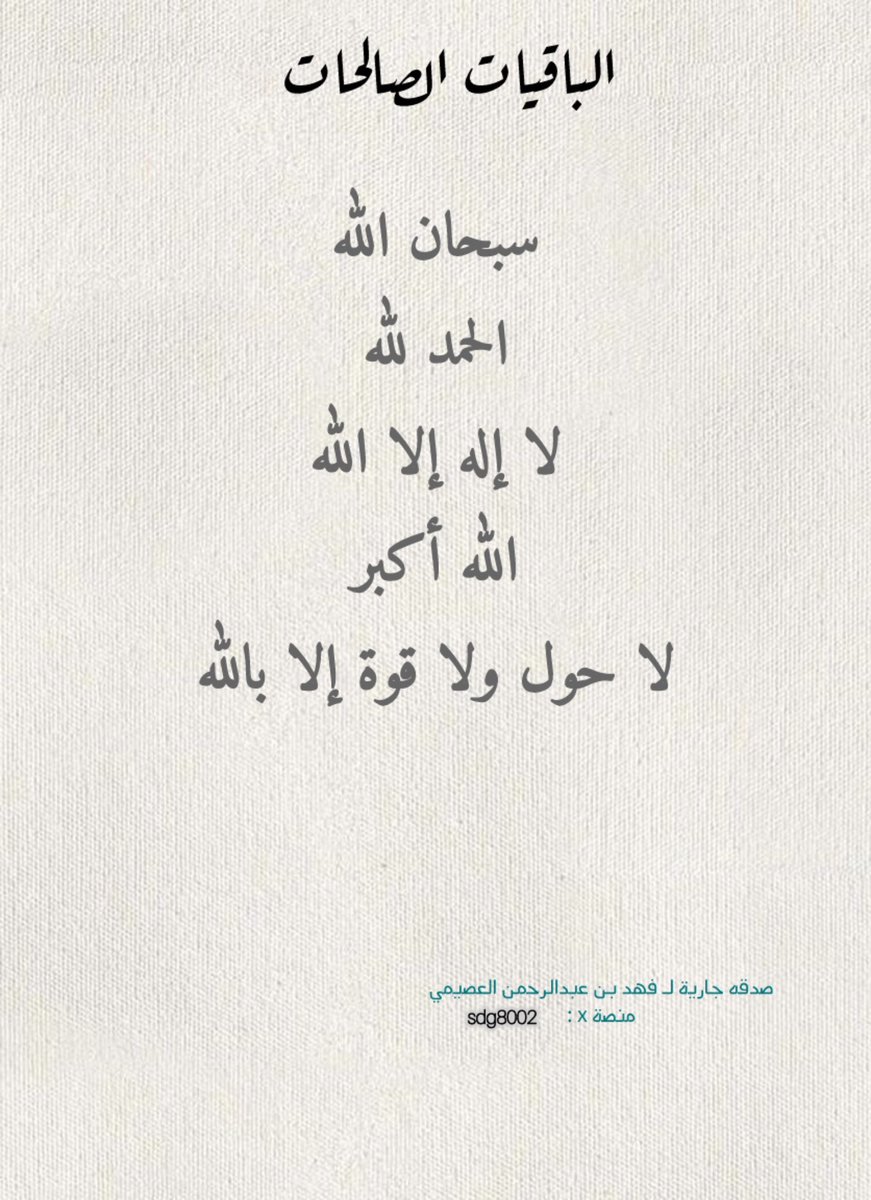 الباقيات الصالحات
سبحان الله
الحمد لله
لا إله إلا الله
الله أكبر
لا حول ولا قوة إلا بالله
صدقه جارية لـ فهد بن عبدالرحمن العصيمي
منصة x : sdg8002